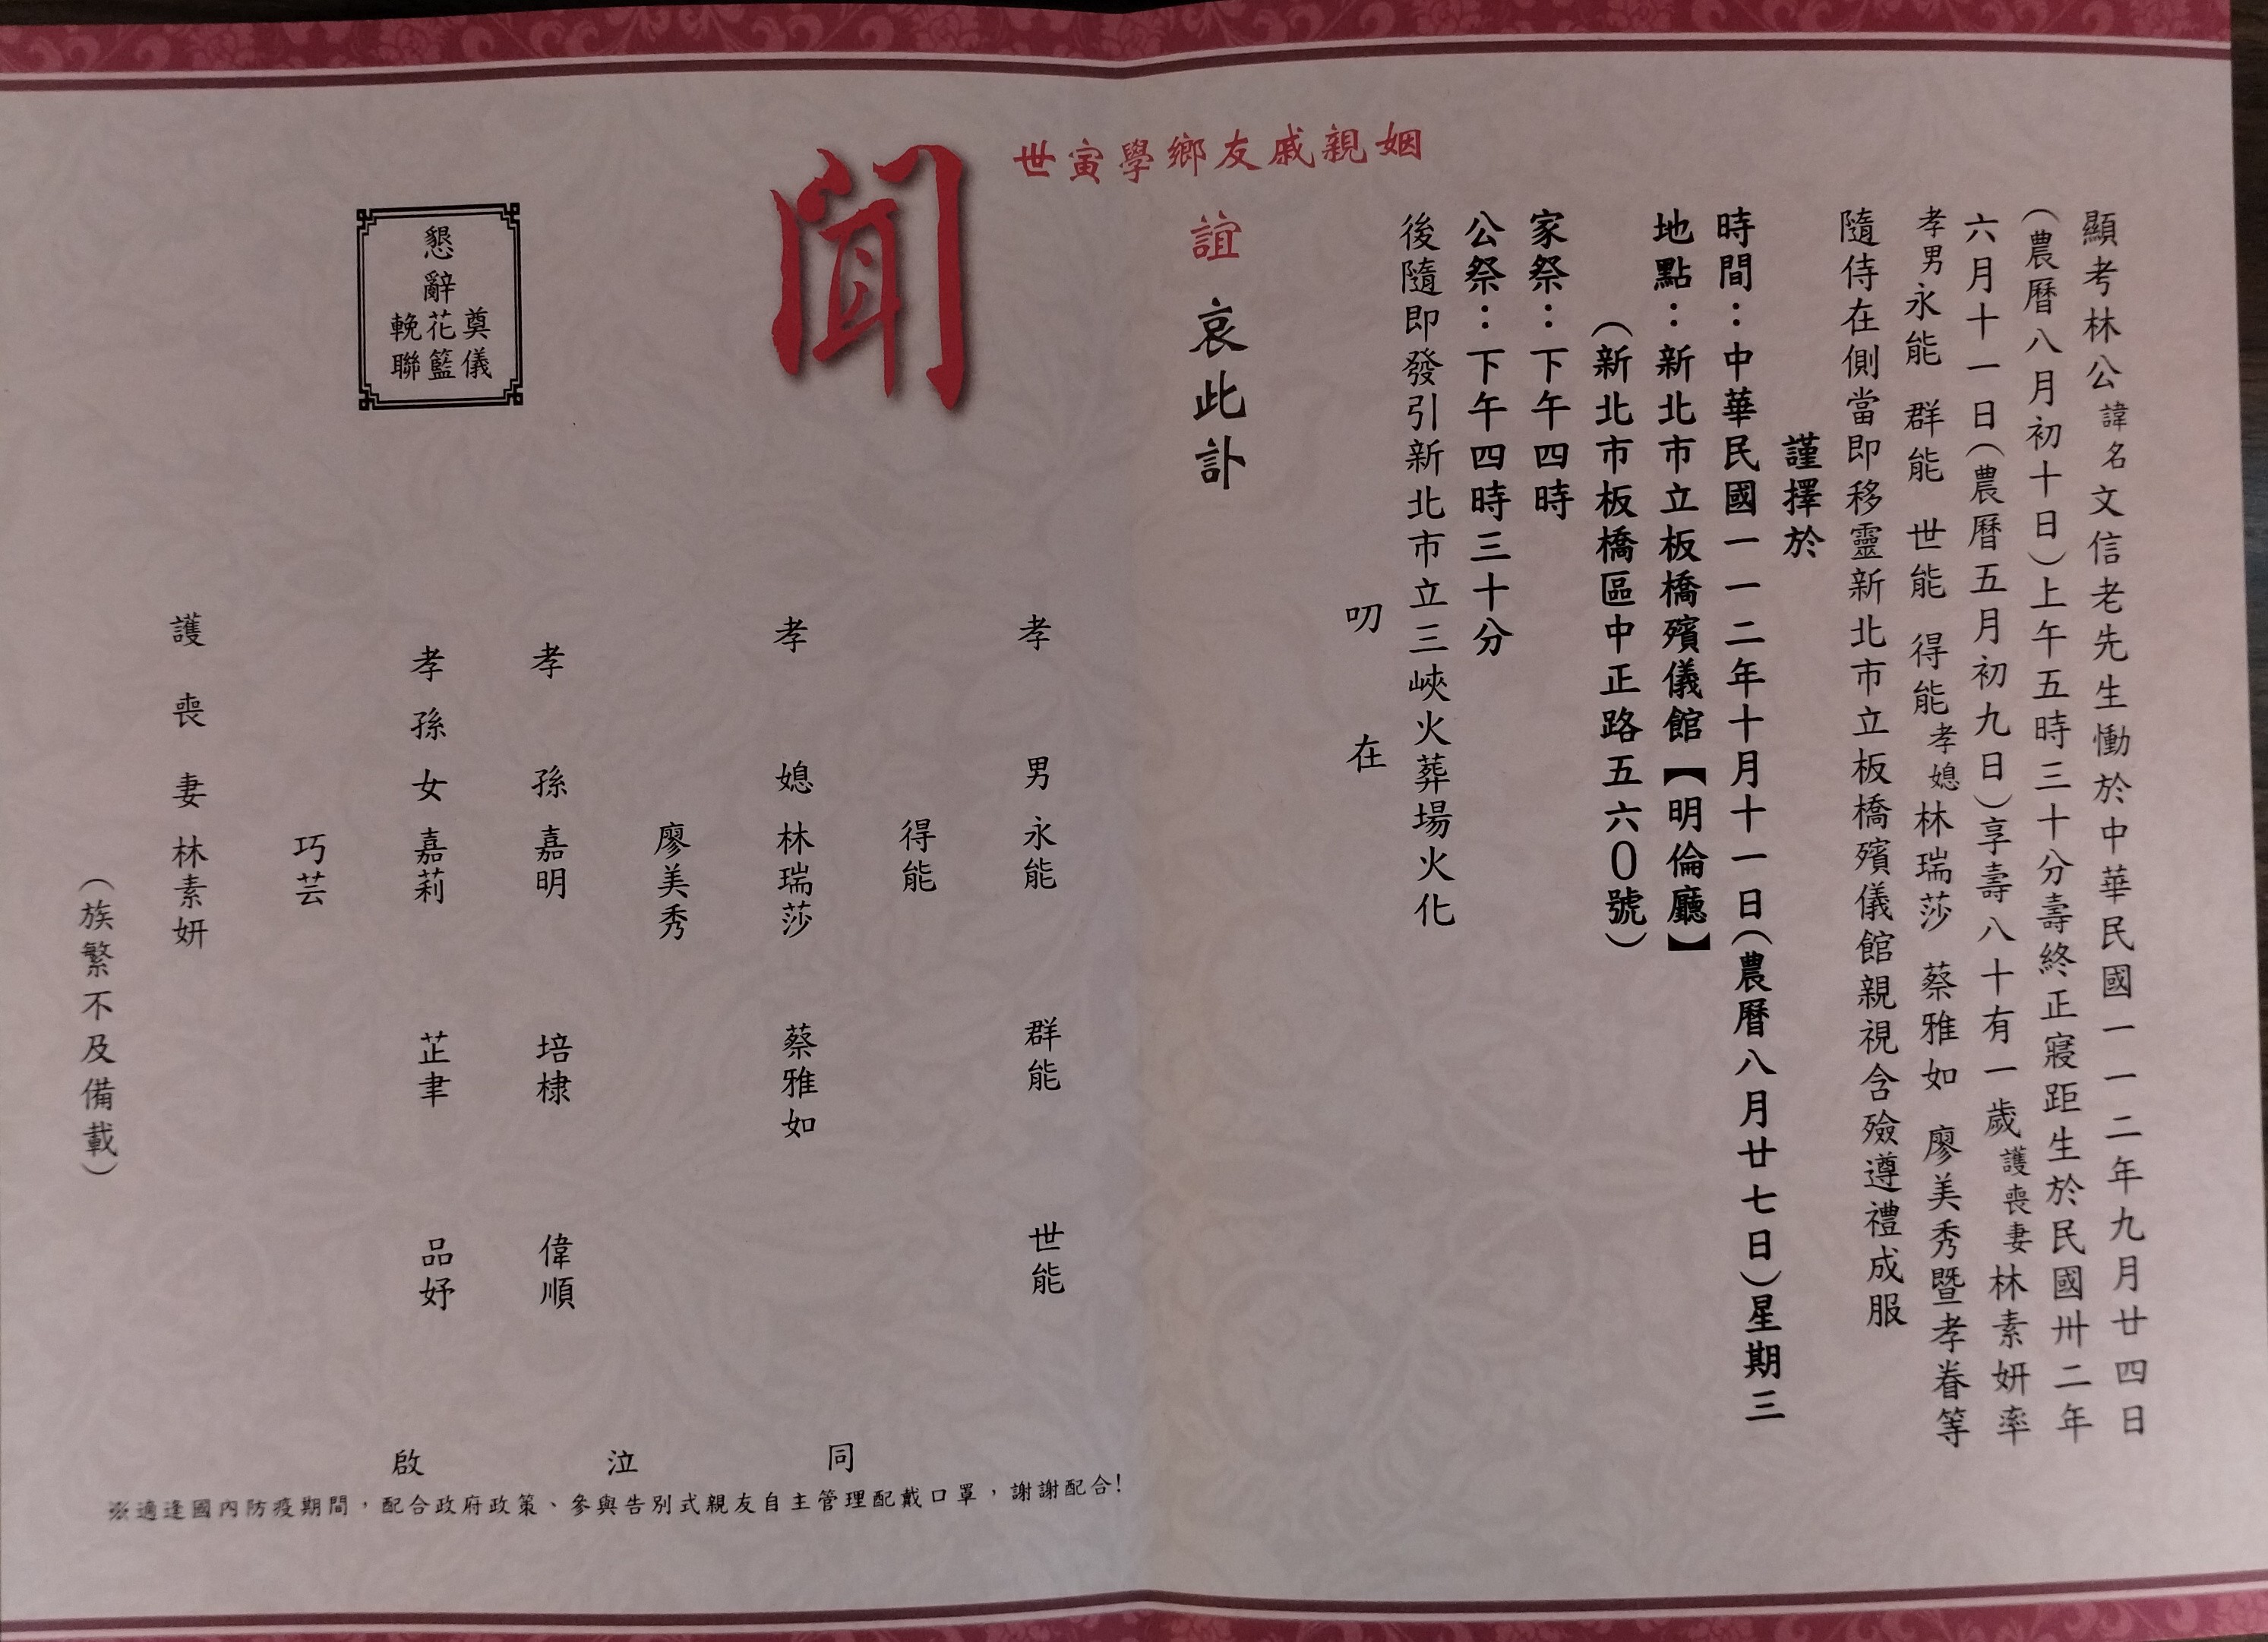 顯考林公諱名文信老先生慟於中華民國一一二年九月廿四日
(農曆八月初十日)上午五時三十分壽終正寢距生於民國卅二年
六月十一日(農曆五月初九日)享壽八十有一歲護喪妻林素妍率
孝男永能 群能 世能 得能孝媳林瑞莎 蔡雅如 廖美秀暨孝眷等
隨侍在側當即移靈新北市立板橋殯儀館親視含殮遵禮成服
謹擇於
時間：中華民國一一二年十月十一日(農曆八月廿七日)星期三
地點：新北市立板橋殯儀館【明倫廳】
(新北市板橋區中正路五六０號)
家祭：下午四時
公祭：下午四時三十分
後隨即發引新北市立三峽火葬場火化
叨在
姻親戚友鄉學寅世
誼 哀此訃
聞
孝男 永能 群能 世能
得能
孝媳 林瑞莎 蔡雅如
廖美秀
孝孫 嘉明 培棣 偉順
孝孫女 嘉莉 芷聿 品妤
巧芸
護喪妻 林素妍
(族繁不及備載)
同泣啟
懇辭
奠儀
花籃
輓聯
※適逢國內防疫期間，配合政府政策、參與告別式親友自主管理配戴口罩，謝謝配合!